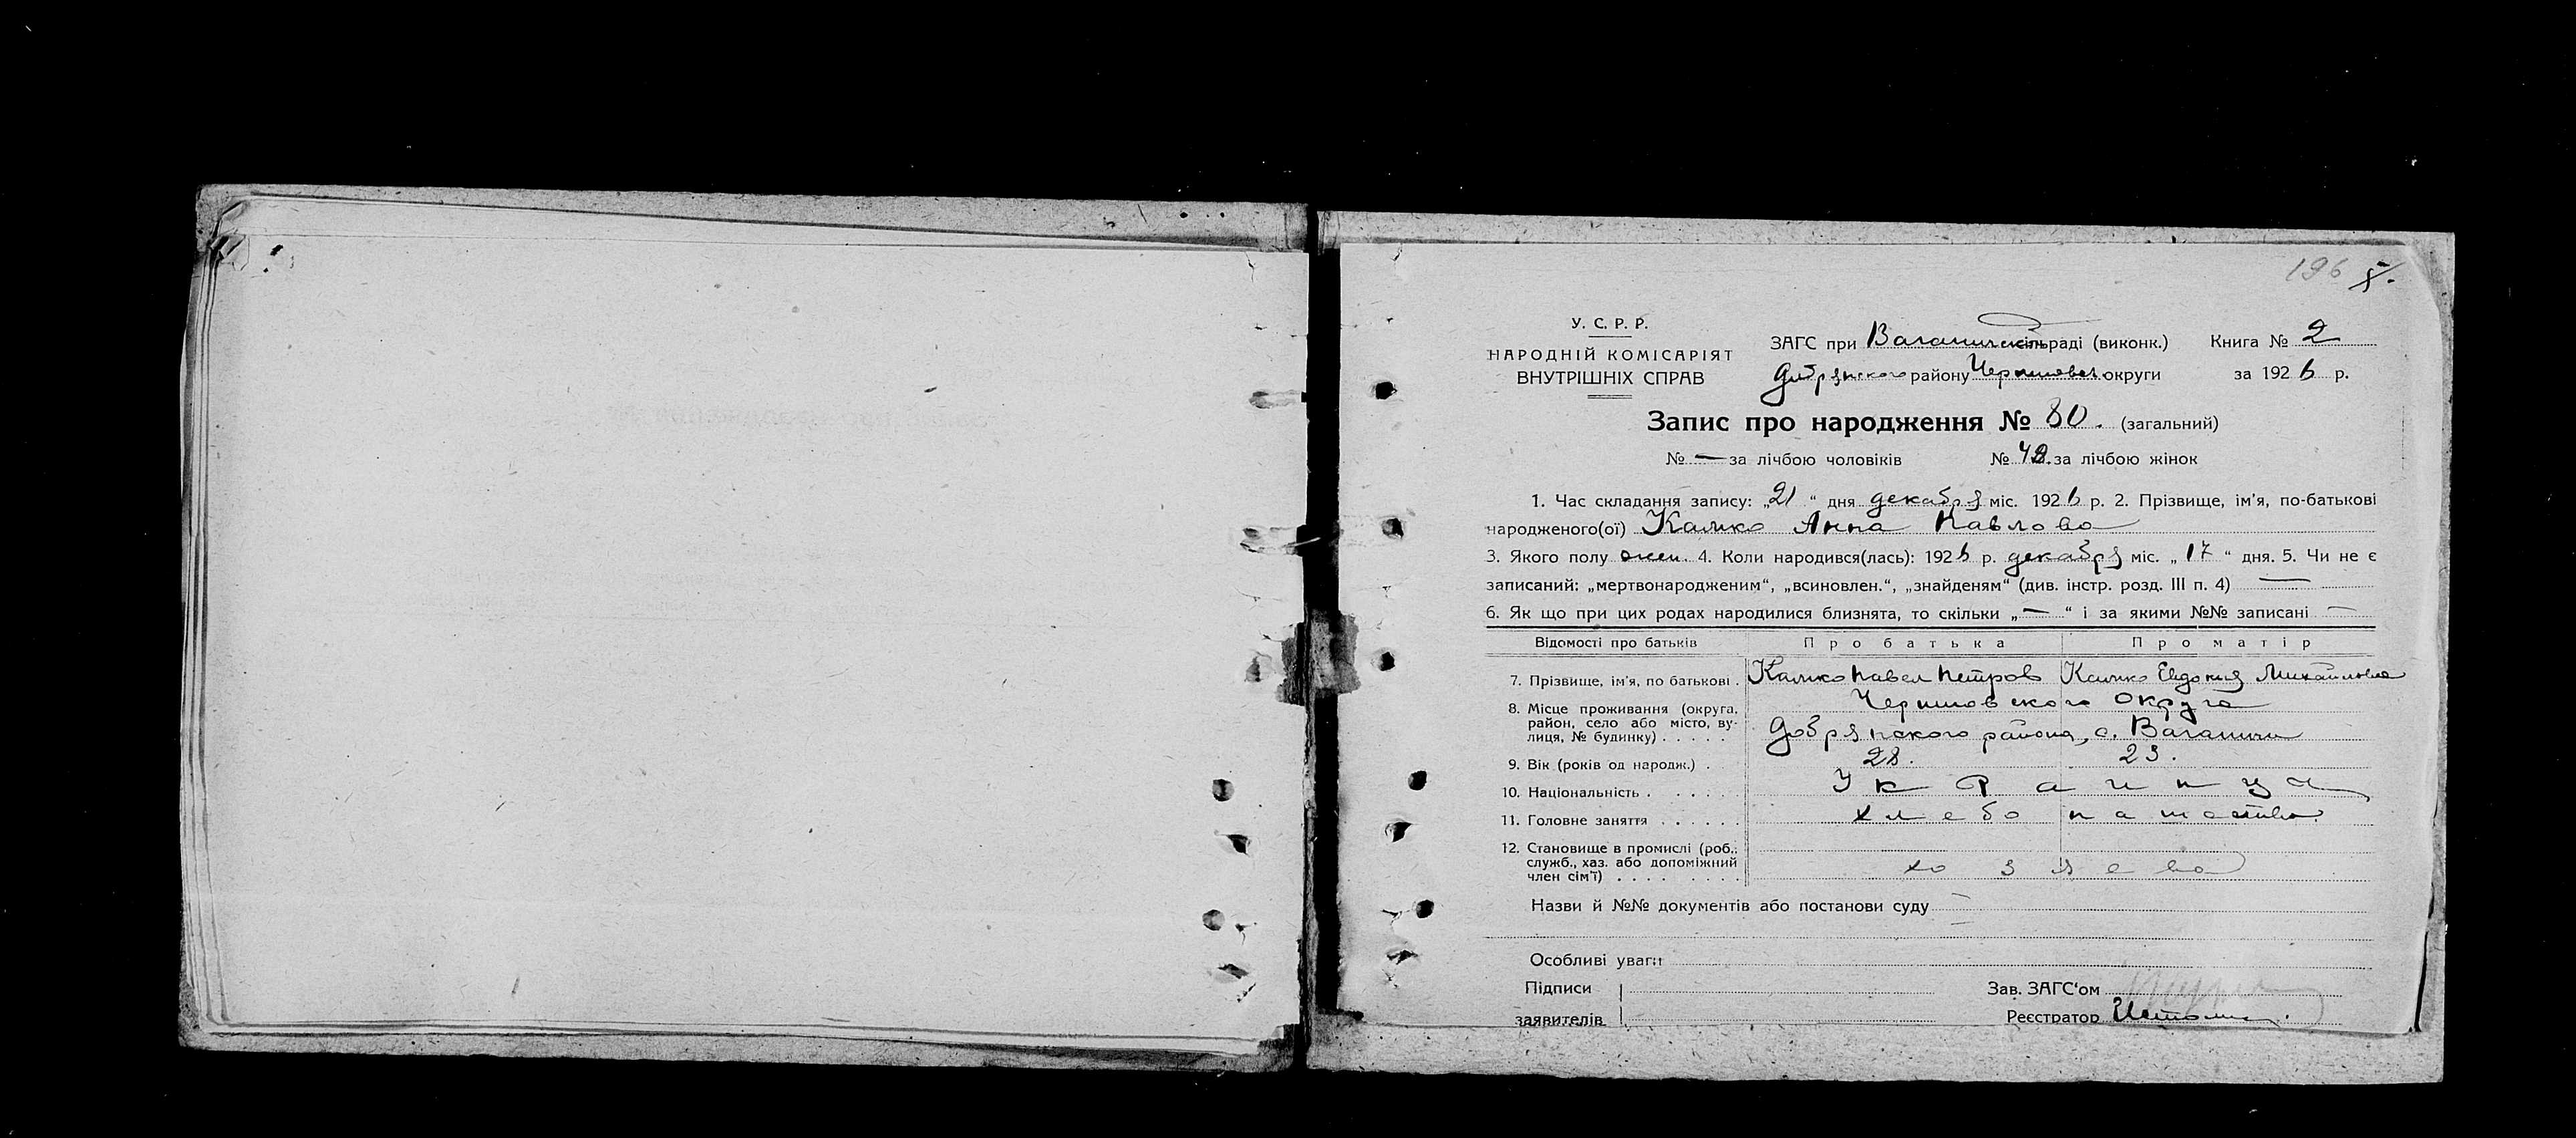 196
У. С. Р. Р.
НАРОДНІЙ КОМІСАРІЯТ
ВНУТРІШНІХ СПРАВ
ЗАГС при Ваганичской сільраді (виконк.) Книга № 2
Добрянского району Черниговск. округи за 1926 р.
Запис про народження № 80. (загальний)
№ — за лічбою чоловіків № 42. за лічбою жінок
1. Час складання запису: „21“ дня декабря міс. 1926 р. 2. Прізвище, ім'я, по-батькові
народженого(ої) Калико Анна Павлова
3. Якого полу жен. 4. Коли народився(лась): 1926 р. декабря міс. „17“ дня. 5. Чи не є
записаний: „мертвонародженим“, „всиновлен.“, „знайденям“ (див. інстр. розд. III п. 4) —
6. Як що при цих родах народилися близнята, то скільки „—“ і за якими №№ записані —
Відомості про батьків Про батька Про матір
7. Прізвище, ім'я, по батькові . Калико Павел Петров Калико Евдокия Михайлова
8. Місце проживання (округа, Черниговского округа
район, село або місто, ву-
лиця, № будинку) . . . . . Добрянского района, с. Ваганичи
9. Вік (років од народж.) . 28. 23.
10. Національність . . . . . . Украинца
11. Головне заняття . . . . . . хлебопашество
12. Становище в промислі (роб.,
служб., хаз. або допоміжний
член сім'ї) . . . . . . . . . хозяева
Назви й №№ документів або постанови суду —
Особливі уваги
Підписи Зав. ЗАГС'ом
заявителів Реєстратор